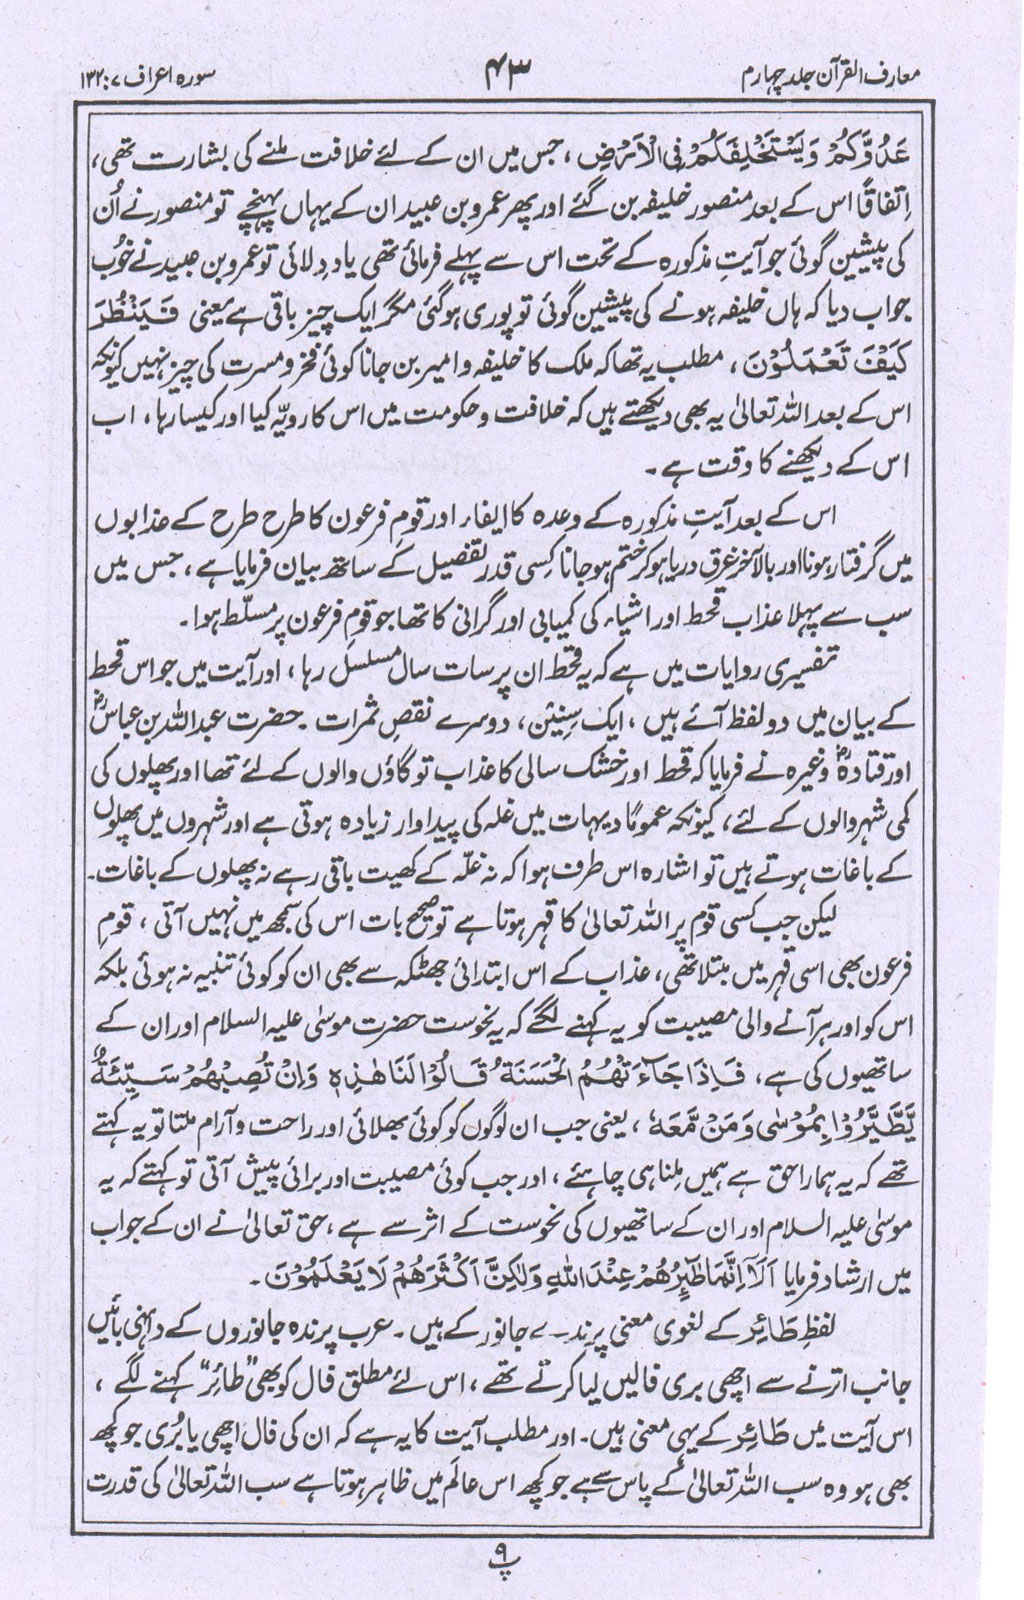 معارف القرآن جلد چہارم
۴۳
سورہ اعراف ۷ : ۱۳۲
عَدُوَّكُمْ وَيَسْتَخْلِفَكُمْ فِي الْاَرْضِ ، جس میں ان کے لئے خلافت ملنے کی بشارت تھی،
اِتفاقًا اس کے بعد منصور خلیفہ بن گئے اور پھر عمرو بن عبید ان کے یہاں پہنچے تو منصور نے اُن
کی پیشین گوئی جو آیتِ مذکورہ کے تحت اس سے پہلے فرمائی تھی یاد دِلائی تو عمرو بن عبید نے خوُب
جواب دیا کہ ہاں خلیفہ ہونے کی پیشین گوئی تو پوری ہوگئی مگر ایک چیز باقی ہے یعنی فَيَنْظُرَ
كَيْفَ تَعْمَلُوْنَ ، مطلب یہ تھا کہ ملک کا خلیفہ و امیر بن جانا کوئی فخر و مسرت کی چیز نہیں کیونکہ
اس کے بعد اللہ تعالیٰ یہ بھی دیکھتے ہیں کہ خلافت و حکومت میں اس کا رویّہ کیا اور کیسا رہا ، اب
اس کے دیکھنے کا وقت ہے ۔
اس کے بعد آیتِ مذکورہ کے وعدہ کا ایفاء اور قومِ فرعون کا طرح طرح کے عذابوں
میں گرفتار ہونا اور بالآخر غرقِ دریا ہوکر ختم ہوجانا کِسی قدر تفصیل کے ساتھ بیان فرمایا ہے ، جس میں
سب سے پہلا عذاب قحط اور اشیاء کی کمیابی اور گرانی کا تھا جو قومِ فرعون پر مسلّط ہوا ۔
تفسیری روایات میں ہے کہ یہ قحط ان پر سات سال مسلسل رہا ، اور آیت میں جو اس قحط
کے بیان میں دو لفظ آئے ہیں ، ایک سِنِیْن ، دوسرے نقصِ ثمرات ۔ حضرت عبداللہ بن عباسؓ
اور قتادہؒ وغیرہ نے فرمایا کہ قحط اور خشک سالی کا عذاب تو گاؤں والوں کے لئے تھا اور پھلوں کی
کمی شہر والوں کے لئے ، کیونکہ عمومًا دیہات میں غلہ کی پیداوار زیادہ ہوتی ہے اور شہروں میں پھلوں
کے باغات ہوتے ہیں تو اشارہ اس طرف ہوا کہ نہ غلّہ کے کھیت باقی رہے نہ پھلوں کے باغات ۔
لیکن جب کسی قوم پر اللہ تعالیٰ کا قہر ہوتا ہے تو صحیح بات اس کی سمجھ میں نہیں آتی ، قومِ
فرعون بھی اسی قہر میں مبتلا تھی ، عذاب کے اس ابتدائی جھٹکہ سے بھی ان کو کوئی تنبیہ نہ ہوئی بلکہ
اس کو اور ہر آنے والی مصیبت کو یہ کہنے لگے کہ یہ نحوست حضرت موسٰی علیہ السلام اور ان کے
ساتھیوں کی ہے ، فَاِذَا جَآءَتْهُمُ الْحَسَنَةُ قَالُوْا لَنَا هٰذِهٖ وَاِنْ تُصِبْهُمْ سَيِّئَةٌ
يَّطَّيَّرُوْا بِمُوْسٰى وَمَنْ مَّعَهٗ ، یعنی جب ان لوگوں کو کوئی بھلائی اور راحت و آرام ملتا تو یہ کہتے
تھے کہ یہ ہمارا حق ہے ہمیں مِلنا ہی چاہئے ، اور جب کوئی مصیبت اور برائی پیش آتی تو کہتے کہ یہ
موسٰی علیہ السلام اور ان کے ساتھیوں کی نحوست کے اثر سے ہے ، حق تعالیٰ نے ان کے جواب
میں ارشاد فرمایا اَلَآ اِنَّمَا طٰٓئِرُهُمْ عِنْدَ اللّٰهِ وَلٰكِنَّ اَكْثَرَهُمْ لَا يَعْلَمُوْنَ ۔
لفظِ طَائِر کے لغوی معنی پرندے جانور کے ہیں ۔ عرب پرندہ جانوروں کے داہنی بائیں
جانب اترنے سے اچھی بری فالیں لیا کرتے تھے ، اس لئے مطلق فال کو بھی ”طائِر“ کہنے لگے ،
اس آیت میں طَائِر کے یہی معنی ہیں ۔ اور مطلب آیت کا یہ ہے کہ ان کی فال اچھی یا بُری جو کچھ
بھی ہو وہ سب اللہ تعالیٰ کے پاس سے ہے جو کچھ اس عالَم میں ظاہر ہوتا ہے سب اللہ تعالیٰ کی قدرت
پ ۹